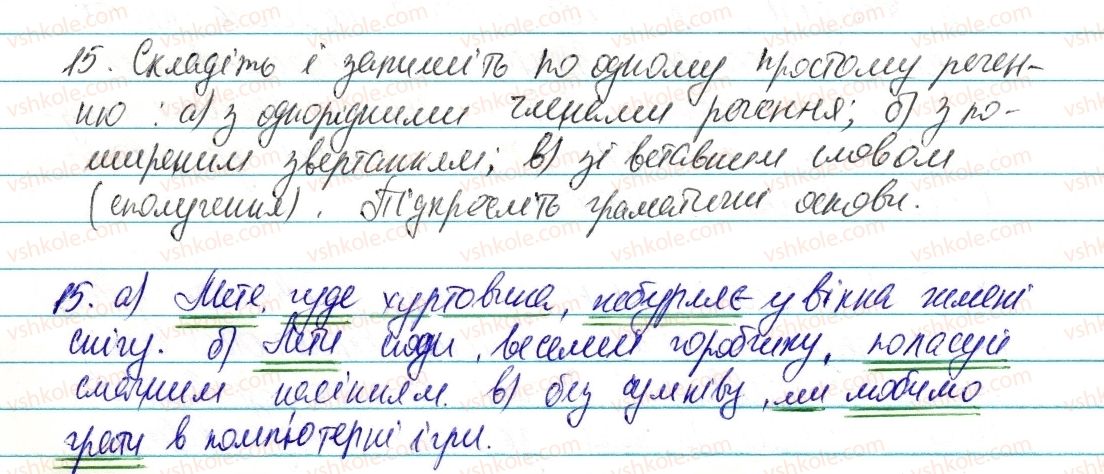 15. Складіть і запишіть по одному простому речен-
ню: а) з однорідними членами речення; б) з по-
ширеним звертанням; в) зі вставним словом
(сполучення). Підкресліть граматичні основи.
15. а) Мете, гуде хуртовина, жбурляє у вікна жмені
снігу. б) Лети сюди, веселий горобчику, поласуй
смачним насінням. в) без сумніву, ми любимо
грати в комп'ютерні ігри.